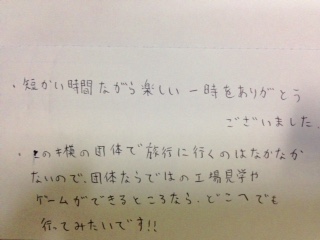 ・短かい時間ながら楽しい一時をありがとう
ございました。
・この規模の団体で旅行に行くのはなかなか
ないので、団体ならではの工場見学や
ゲームができるところなら、どこへでも
行ってみたいです!!